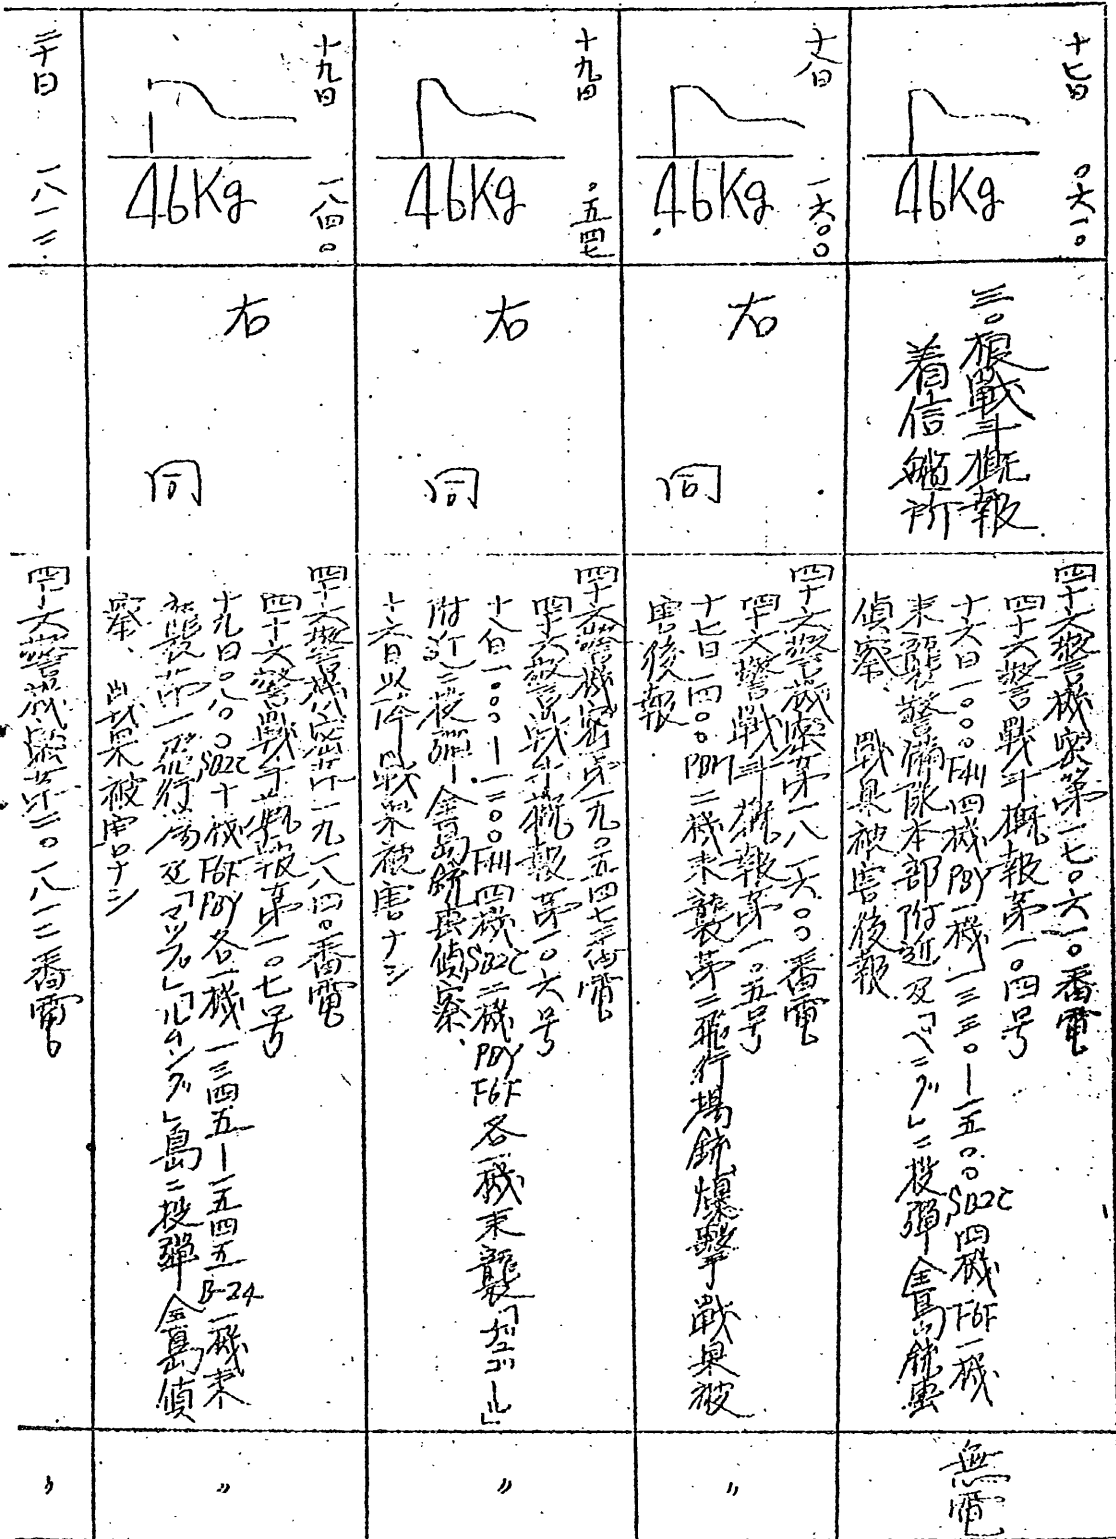 十七日 〇六一〇
46Kg
三〇根戰斗概報
着信艦所
四十六警機密第一七〇六一〇番電
四十六警戰斗概報第一〇四号
十六日一〇〇〇F4U四機PBY一機一三三〇ー一五〇〇SB2C四機F6F一機
来襲警備隊本部附近及「ベニグ」ニ投彈全島銃撃
偵察、戰果被害後報
無電
十八日 一六〇〇
46Kg
右 同
四十六警機密第一八一六〇〇番電
四十六警戰斗概報第一〇五号
十七日一四〇〇PBM二機来襲第二飛行場銃爆撃戰果被
害後報
〃
十九日 〇五四七
46Kg
右 同
四十六警機密第一九〇五四七番電
四十六警戰斗概報第一〇六号
十八日一〇〇〇ー一二〇〇F4U四機SB2C二機PBY F6F各一機来襲
附近ニ投彈全島銃撃偵察、
十六日以降戰果被害ナシ
〃
十九日 一八四〇
46Kg
右 同
四十六警機密第一九一八四〇番電
四十六警戰斗概報第一〇七号
十九日〇八〇〇SB2C十機F6F PBY各一機一三四五ー一五四五B-24一機来
襲第一飛行場及「マップ」「ルムング」島ニ投彈全島偵
察、戰果被害ナシ
〃
二十日 一八一二
四十六警機密第二〇一八一二番電
〃